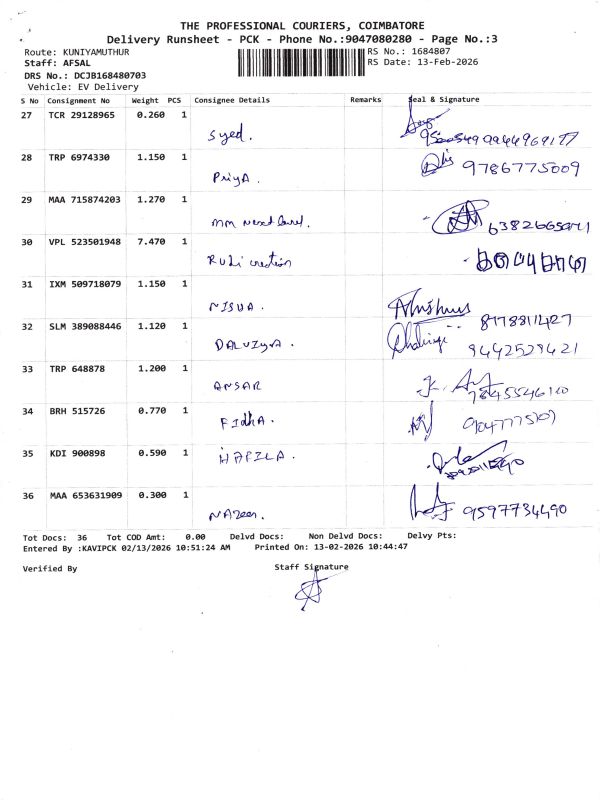 THE PROFESSIONAL COURIERS, COIMBATORE
Delivery Runsheet - PCK - Phone No.:9047080280 - Page No.:3
Route: KUNIYAMUTHUR RS No.: 1684807
Staff: AFSAL RS Date: 13-Feb-2026
DRS No.: DCJB168480703
Vehicle: EV Delivery
S No Consignment No Weight PCS Consignee Details Remarks Seal & Signature
27 TCR 29128965 0.260 1
Syed.
28 TRP 6974330 1.150 1
9786775009
PriyA.
29 MAA 715874203 1.270 1
mm next level.
30 VPL 523501948 7.470 1
creation
31 IXM 509718079 1.150 1
NISHA.
8178811427
32 SLM 389088446 1.120 1
9442529421
33 TRP 648878 1.200 1
ANSAR
34 BRH 515726 0.770 1
FIdhA.
35 KDI 900898 0.590 1
HAFILA.
36 MAA 653631909 0.300 1
9597734490
NAzeer.
Tot Docs: 36 Tot COD Amt: 0.00 Delvd Docs: Non Delvd Docs: Delvy Pts:
Entered By :KAVIPCK 02/13/2026 10:51:24 AM Printed On: 13-02-2026 10:44:47
Verified By Staff Signature